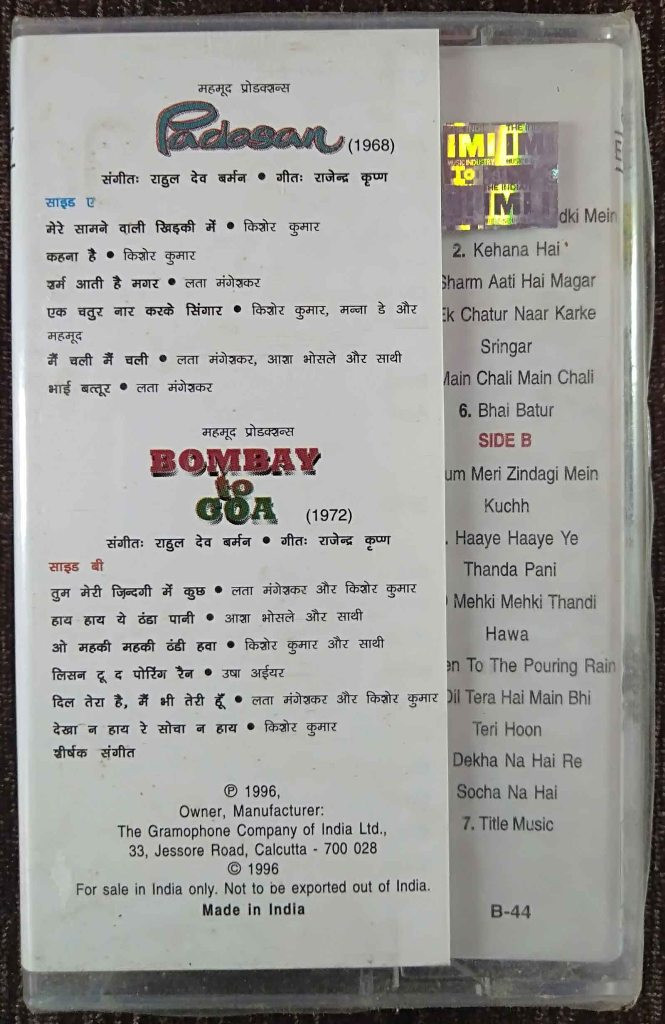 महमूद प्रोडक्शन्स
Padosan (1968)
संगीतः राहुल देव बर्मन • गीतः राजेन्द्र कृष्ण
साइड ए
मेरे सामने वाली खिड़की में • किशोर कुमार
कहना है • किशोर कुमार
शर्म आती है मगर • लता मंगेशकर
एक चतुर नार करके सिंगार • किशोर कुमार, मन्ना डे और
महमूद
मैं चली मैं चली • लता मंगेशकर, आशा भोसले और साथी
भाई बत्तूर • लता मंगेशकर
महमूद प्रोडक्शन्स
BOMBAY
to
GOA (1972)
संगीतः राहुल देव बर्मन • गीतः राजेन्द्र कृष्ण
साइड बी
तुम मेरी ज़िन्दगी में कुछ • लता मंगेशकर और किशोर कुमार
हाय हाय ये ठंडा पानी • आशा भोसले और साथी
ओ महकी महकी ठंडी हवा • किशोर कुमार और साथी
लिसन टू द पोरिंग रैन • उषा अईयर
दिल तेरा है, मैं भी तेरी हूँ • लता मंगेशकर और किशोर कुमार
देखा न हाय रे सोचा न हाय • किशोर कुमार
शीर्षक संगीत
℗ 1996,
Owner, Manufacturer:
The Gramophone Company of India Ltd.,
33, Jessore Road, Calcutta - 700 028
© 1996
For sale in India only. Not to be exported out of India.
Made in India
IMI
MUSIC INDUSTRY
THE INDIAN
dki Mein
2. Kehana Hai
Sharm Aati Hai Magar
Ek Chatur Naar Karke
Sringar
Main Chali Main Chali
6. Bhai Batur
SIDE B
um Meri Zindagi Mein
Kuchh
. Haaye Haaye Ye
Thanda Pani
Mehki Mehki Thandi
Hawa
en To The Pouring Rain
Dil Tera Hai Main Bhi
Teri Hoon
Dekha Na Hai Re
Socha Na Hai
7. Title Music
B-44